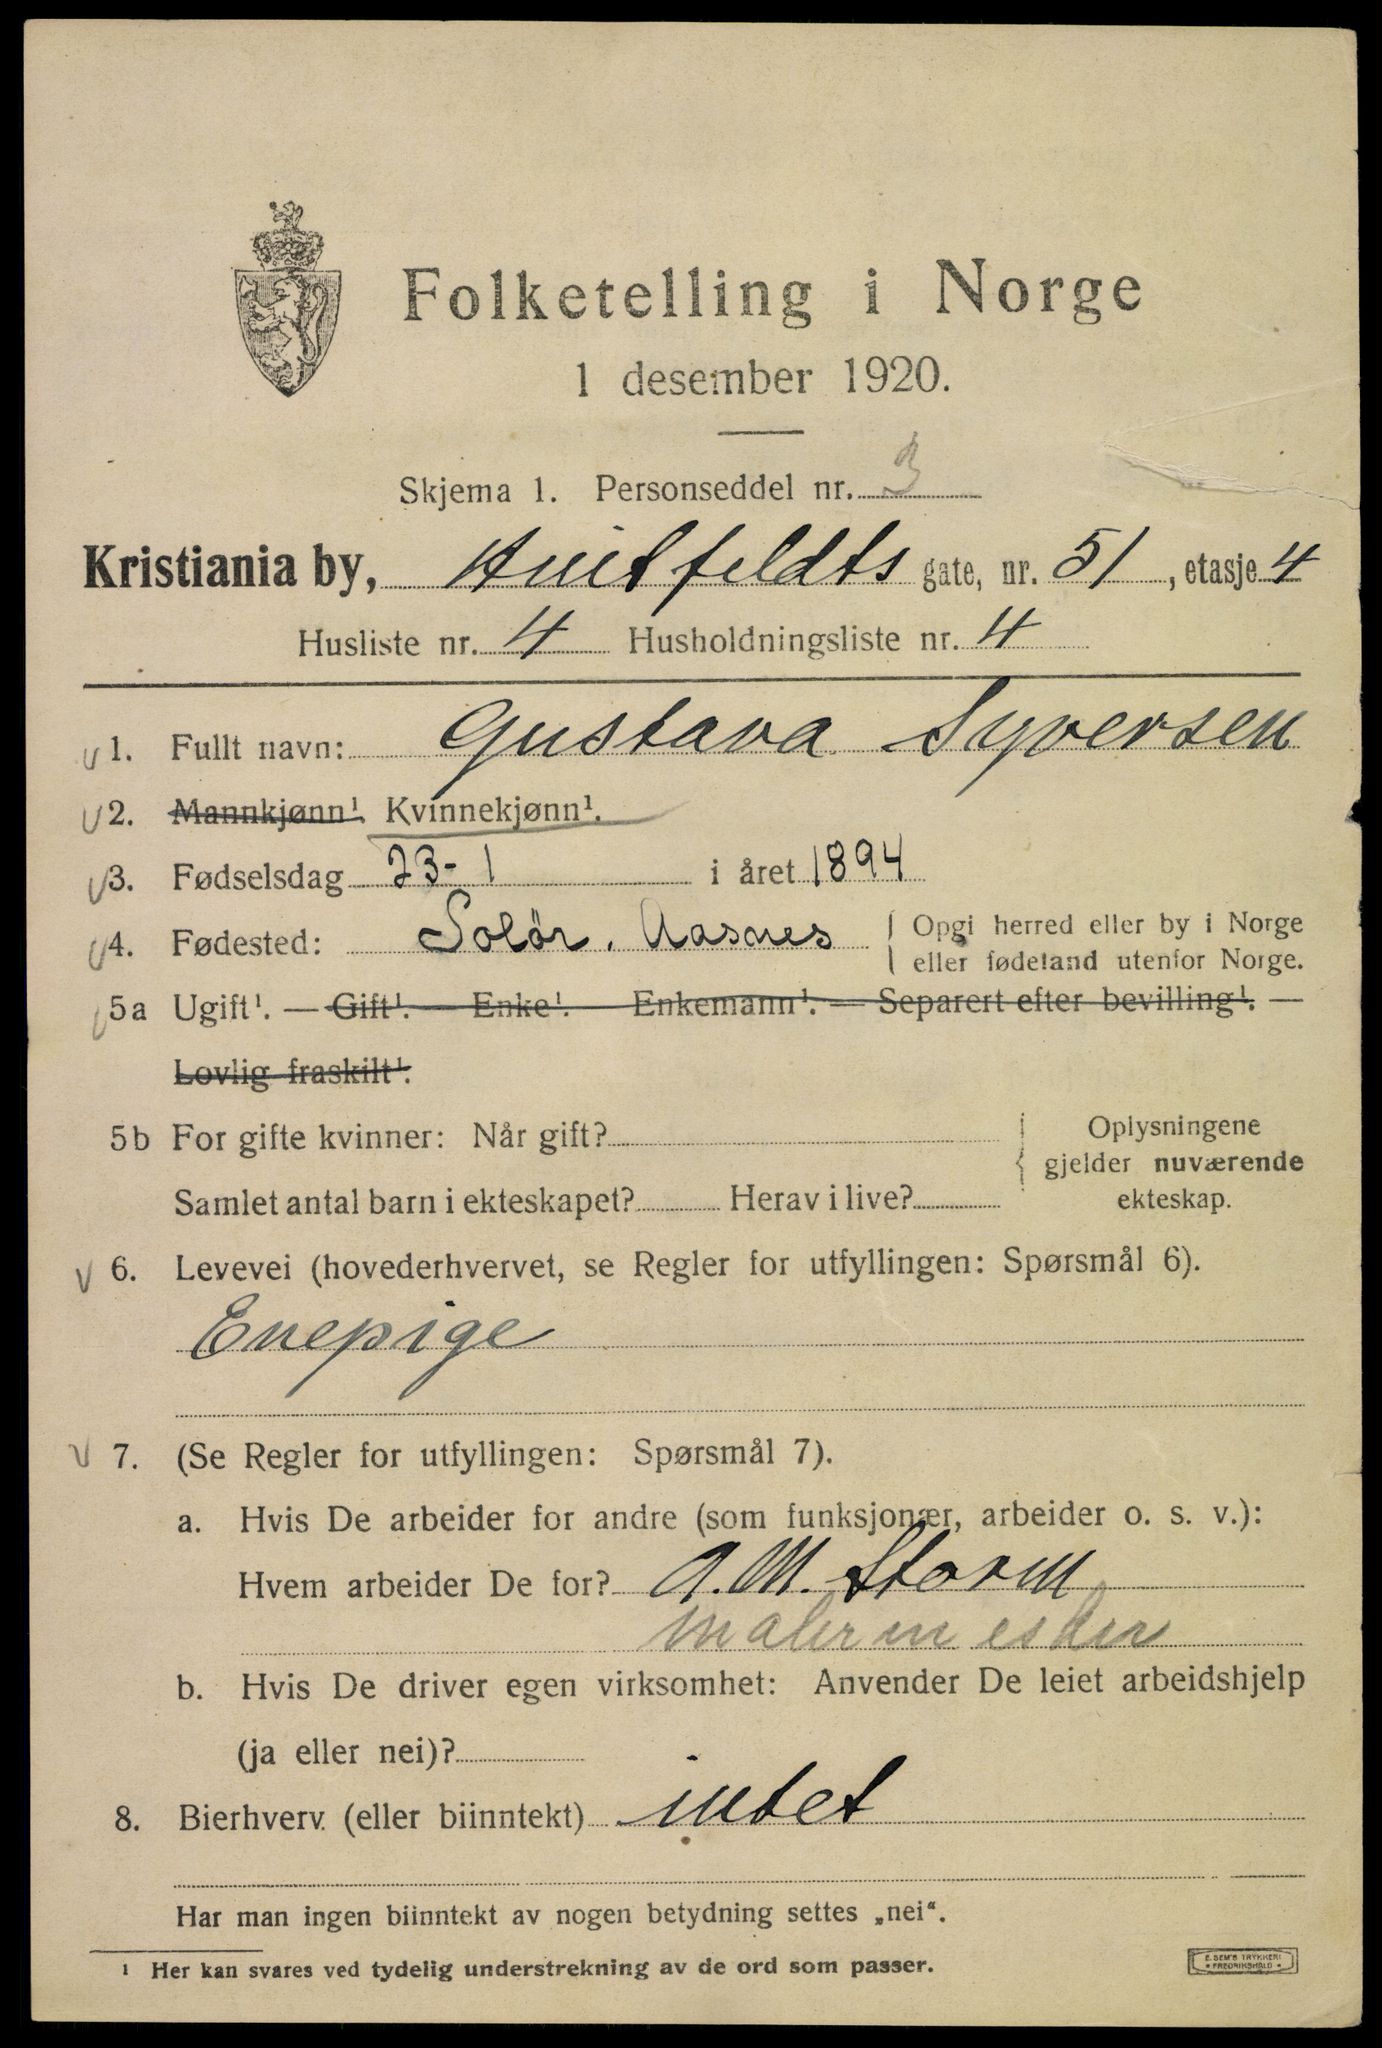 Folketelling i Norge
1 desember 1920.
Skjema 1. Personseddel nr. 3
Kristiania by, Huitfeldts gate, nr. 51, etasje 4
Husliste nr. 4 Husholdningsliste nr. 4
v 1. Fullt navn: Gustava Syversen
v 2. Mannkjønn¹. Kvinnekjønn¹.
v 3. Fødselsdag 23-1 i året 1894
v 4. Fødested: Solør. Aasnes Opgi herred eller by i Norge
eller fødeland utenfor Norge.
v 5a Ugift¹. — Gift¹. — Enke¹. Enkemann¹. — Separert efter bevilling¹. —
Lovlig fraskilt¹.
5b For gifte kvinner: Når gift? Oplysningene
gjelder nuværende
Samlet antal barn i ekteskapet? Herav i live? ekteskap.
v 6. Levevei (hovederhvervet, se Regler for utfyllingen: Spørsmål 6).
Enepige
v 7. (Se Regler for utfyllingen: Spørsmål 7).
a. Hvis De arbeider for andre (som funksjonær, arbeider o. s. v.):
Hvem arbeider De for? A. M. Storm
malermester
b. Hvis De driver egen virksomhet: Anvender De leiet arbeidshjelp
(ja eller nei)?
8. Bierhverv (eller biinntekt) intet
Har man ingen biinntekt av nogen betydning settes „nei".
¹ Her kan svares ved tydelig understrekning av de ord som passer.
E. SEM'S TRYKKERI
• FREDRIKSHALD •